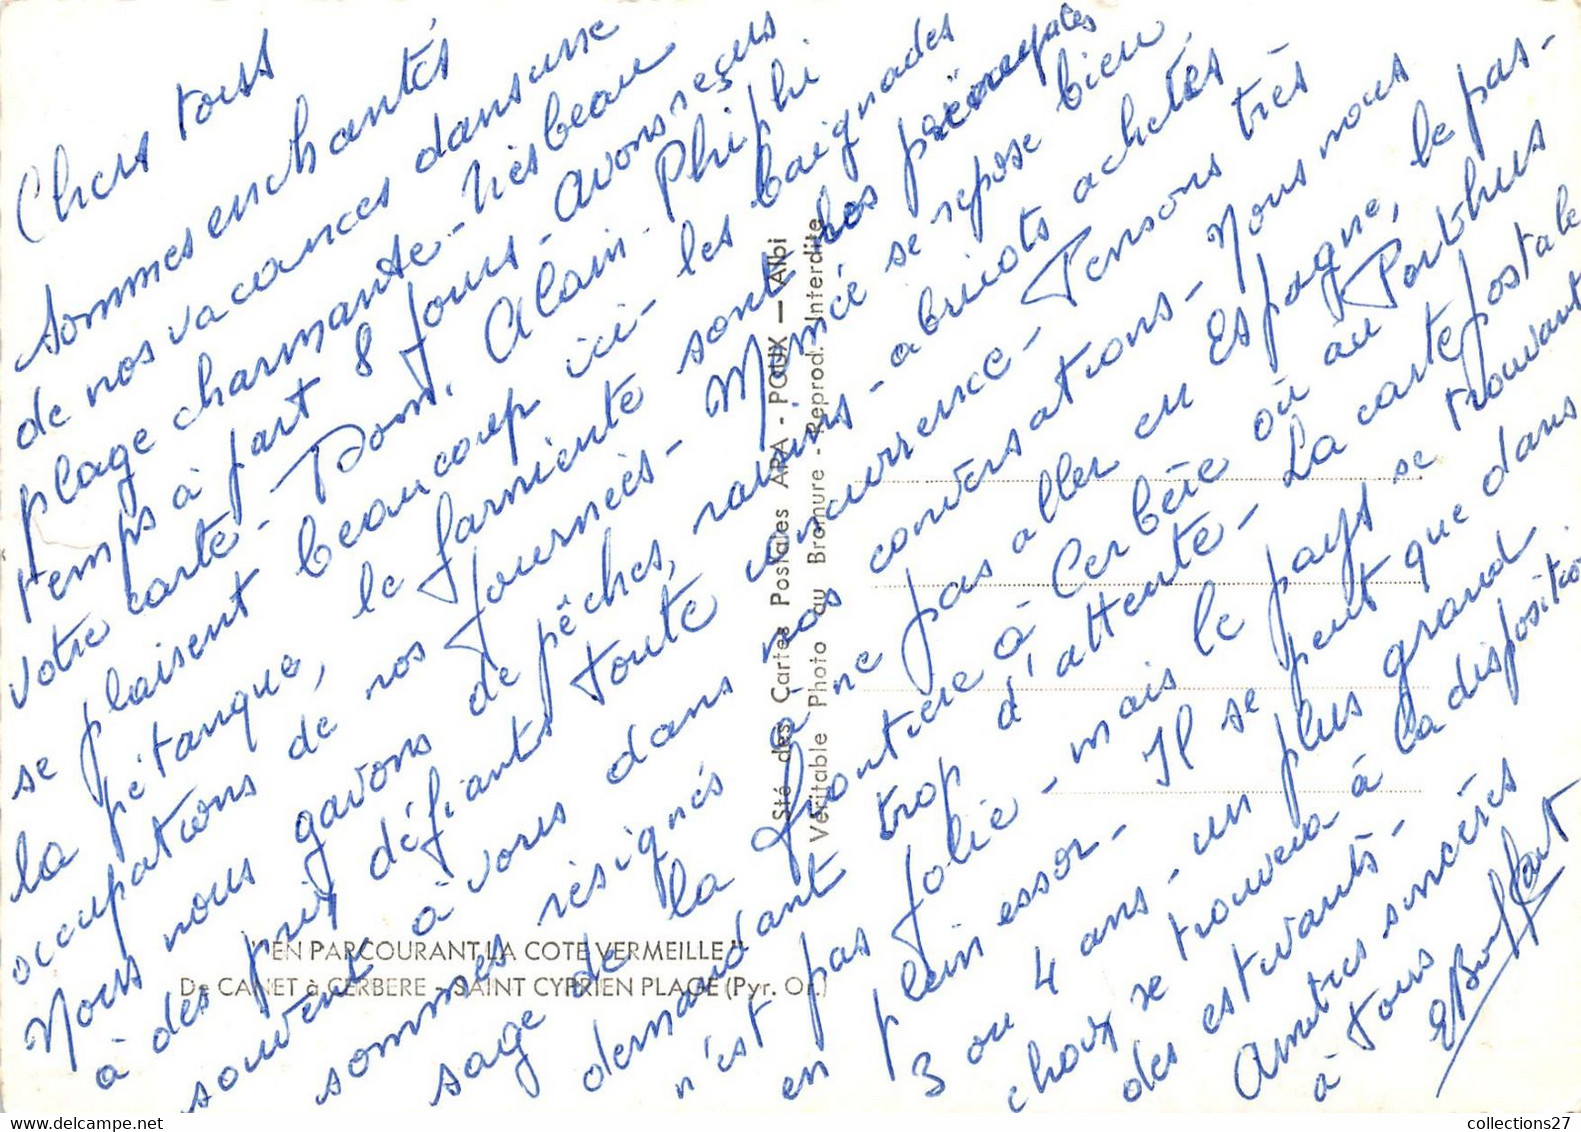 Chers tous
Sommes enchantés
de nos vacances dans une
plage charmante - très beau
temps à part 8 jours - avons reçus
votre carte - Dom, Alain - Phiphi
se plaisent beaucoup ici - les baignades
la pétanque, le farniente sont les principales
occupations de nos journées - Mémé se repose bien
Nous nous gavons de pêches, raisins - abricots achetés
à des prix défiants toute concurrence - Pensons très
souvent à vous dans nos conversations - Nous nous
sommes résignés à ne pas aller en Espagne, le pas-
sage de la frontière à Cerbère ou au Perthus
demandant trop d'attente - La carte postale
n'est pas jolie - mais le pays se trouvant
en plein essor - Il se peut que dans
3 ou 4 ans - un plus grand
choix se trouvera à la disposition
des estivants -
Amitiés sincères
à tous
"EN PARCOURANT LA COTE VERMEILLE"
De CANET à CERBERE - SAINT CYPRIEN PLAGE (Pyr. Or.)
Sté des Cartes Postales APA - POUX — Albi
Véritable Photo au Bromure - Reprod. Interdite
collections27